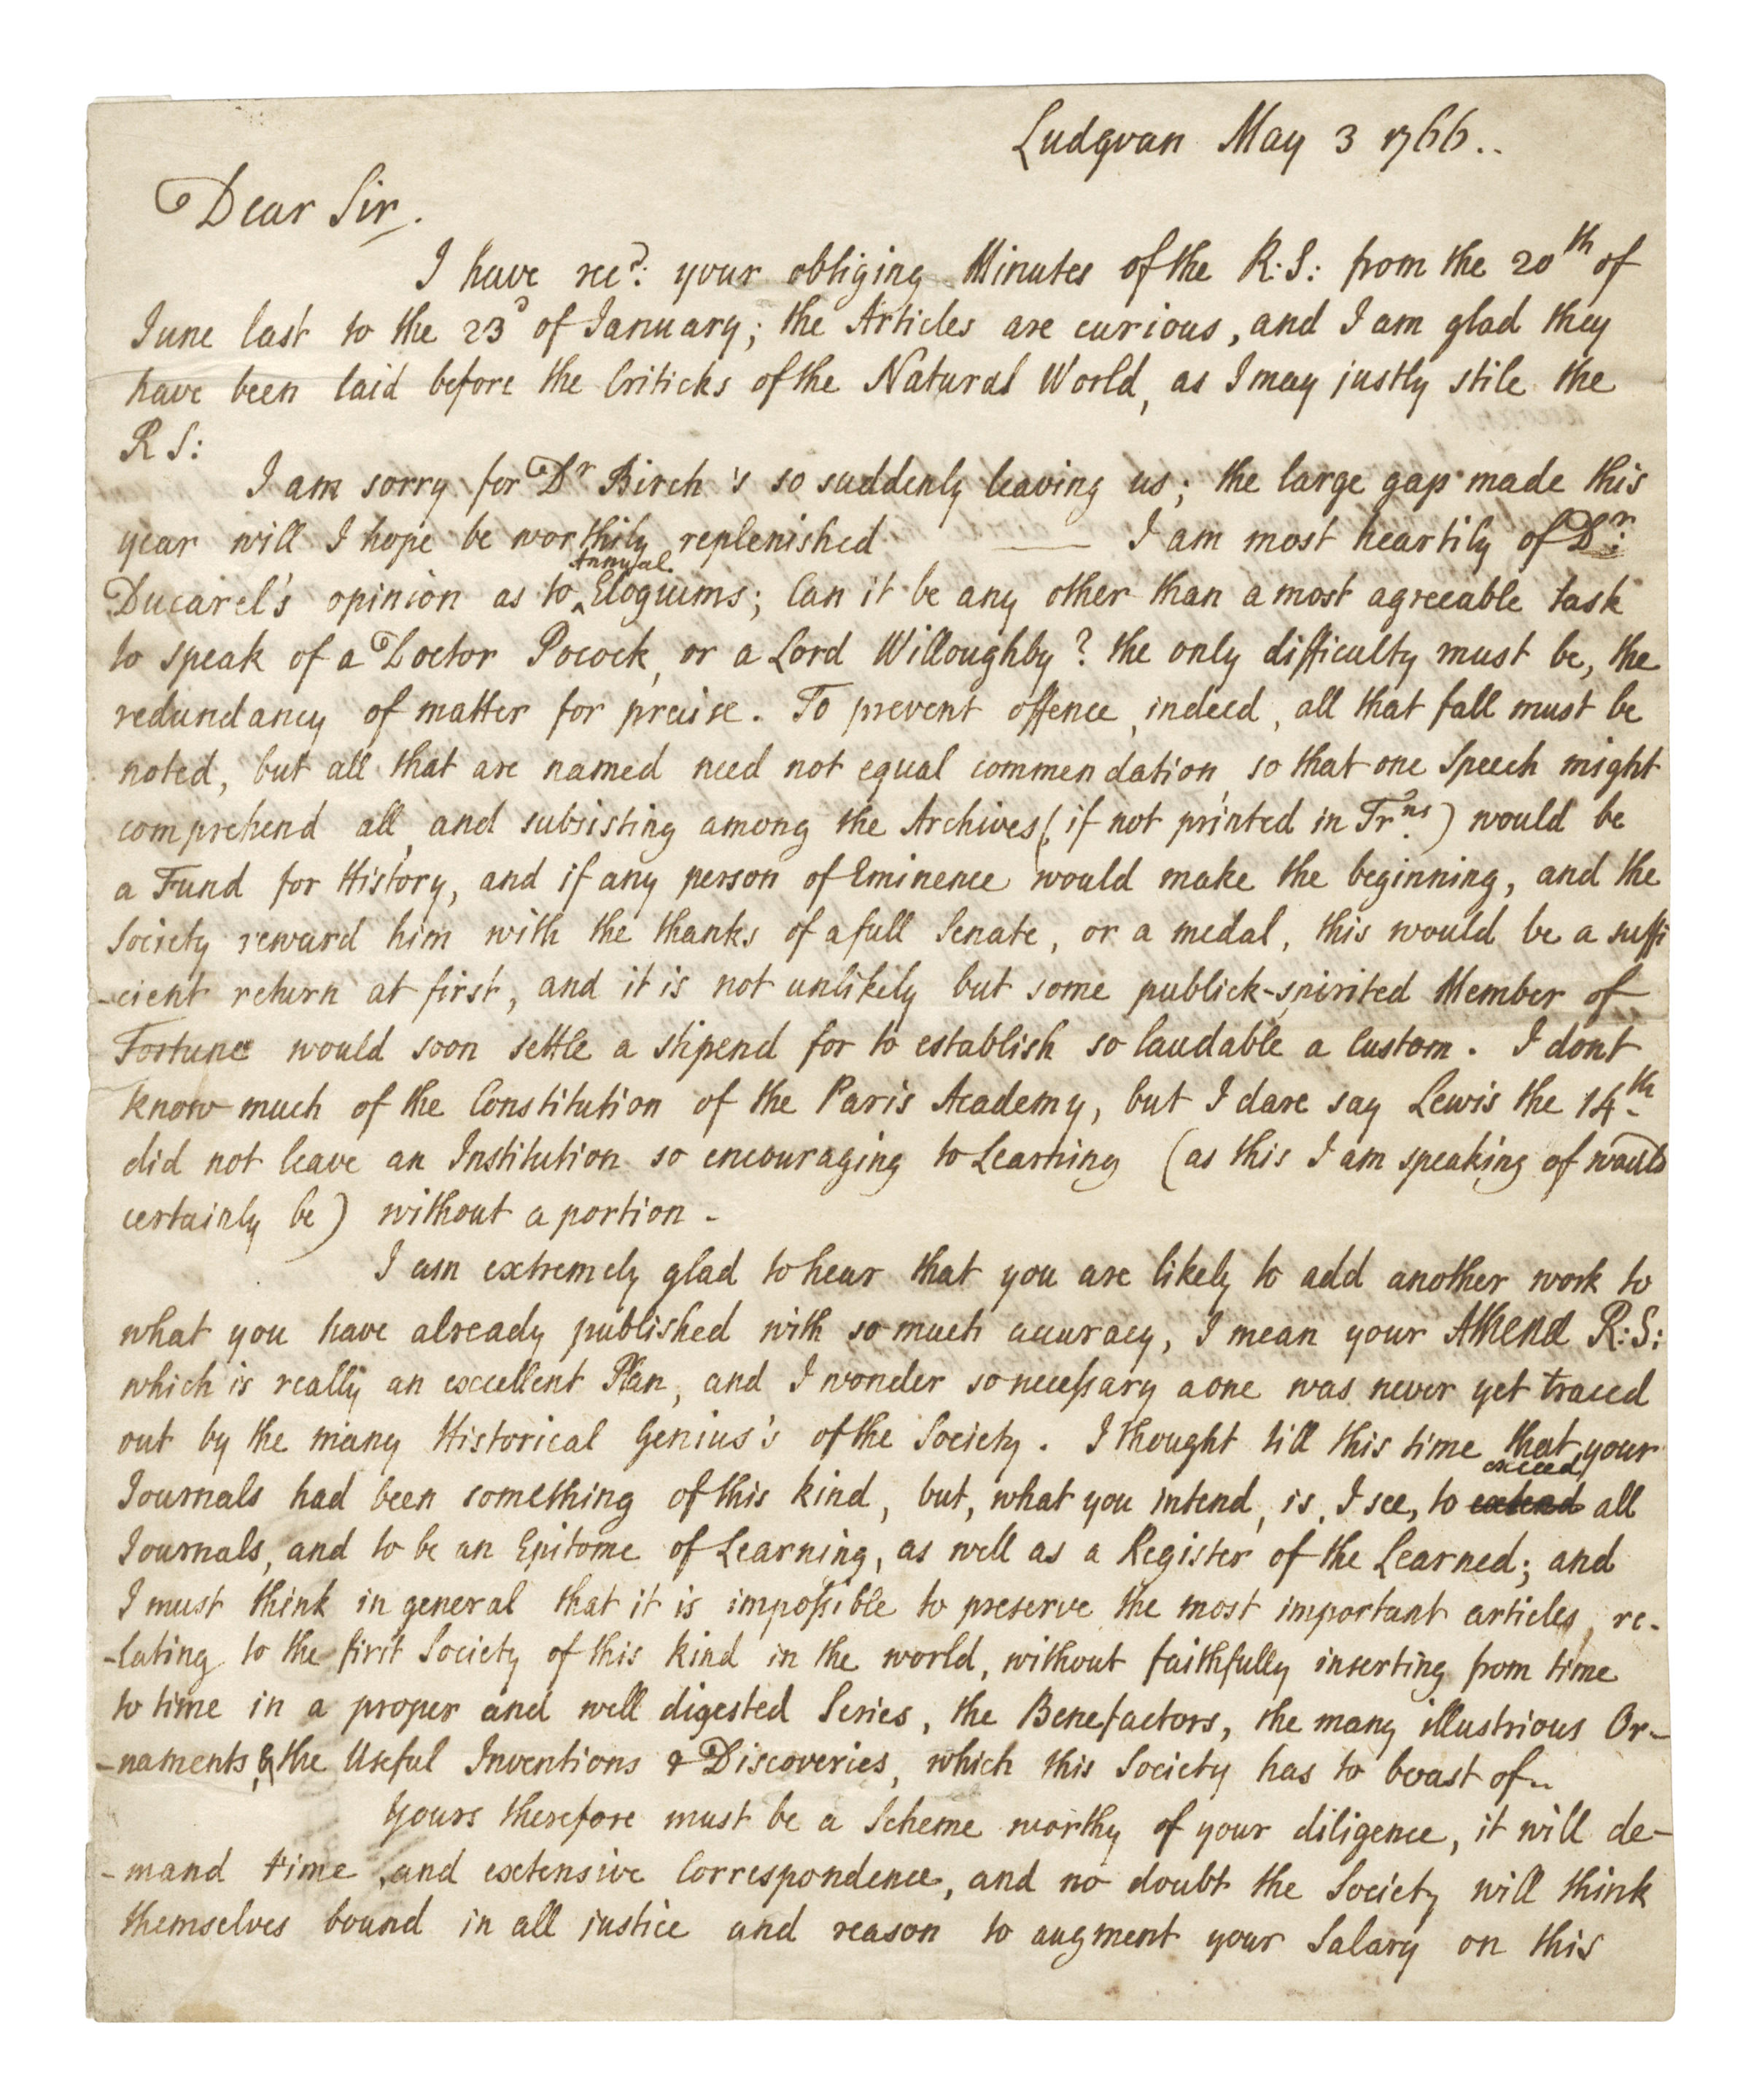 Ludgvan May 3 1766..
Dear Sir.
I have rec:d your obliging Minutes of the R:S: from the 20th of
June last to the 23d of January; the Articles are curious, and I am glad they
have been laid before the Criticks of the Natural World, as I may justly stile the
R S:
I am sorry for Dr Birch's so suddenly leaving us; the large gap made this
year will I hope be worthily replenished —— I am most heartily of Dr:
Annual
Ducarel's opinion as to ^ Elogiums; Can it be any other than a most agreeable task
to speak of a Doctor Pocock, or a Lord Willoughby? the only difficulty must be, the
redundancy of matter for praise. To prevent offence, indeed, all that fall must be
noted, but all that are named need not equal commendation, so that one Speech might
comprehend all, and subsisting among the Archives (if not printed in Trns) would be
a Fund for History, and if any person of Eminence would make the beginning, and the
Society reward him with the thanks of a full Senate, or a medal, this would be a suffi
-cient return at first, and it is not unlikely but some publick-spirited Member of
Fortune would soon settle a stipend for to establish so laudable a Custom. I dont
know much of the Constitution of the Paris Academy, but I dare say Lewis the 14th
did not leave an Institution so encouraging to Learning (as this I am speaking of would
certainly be) without a portion -
I am extremely glad to hear that you are likely to add another work to
what you have already published with so much accuracy, I mean your Athenæ R:S:
which is really an excellent Plan, and I wonder so necessary a one was never yet traced
out by the many Historical Genius's of the Society. I thought till this time that your
exceed
Journals had been something of this kind, but, what you intend, is, I see, to extend all
Journals, and to be an Epitome of Learning, as well as a Register of the Learned; and
I must think in general that it is impossible to preserve the most important articles, re-
-lating to the first Society of this kind in the world, without faithfully inserting from time
to time in a proper and well digested Series, the Benefactors, the many illustrious Or-
-naments, & the Useful Inventions & Discoveries, which this Society has to boast of..
Yours therefore must be a Scheme worthy of your diligence, it will de-
-mand time, and extensive Correspondence, and no doubt the Society will think
themselves bound in all justice and reason to augment your Salary on this